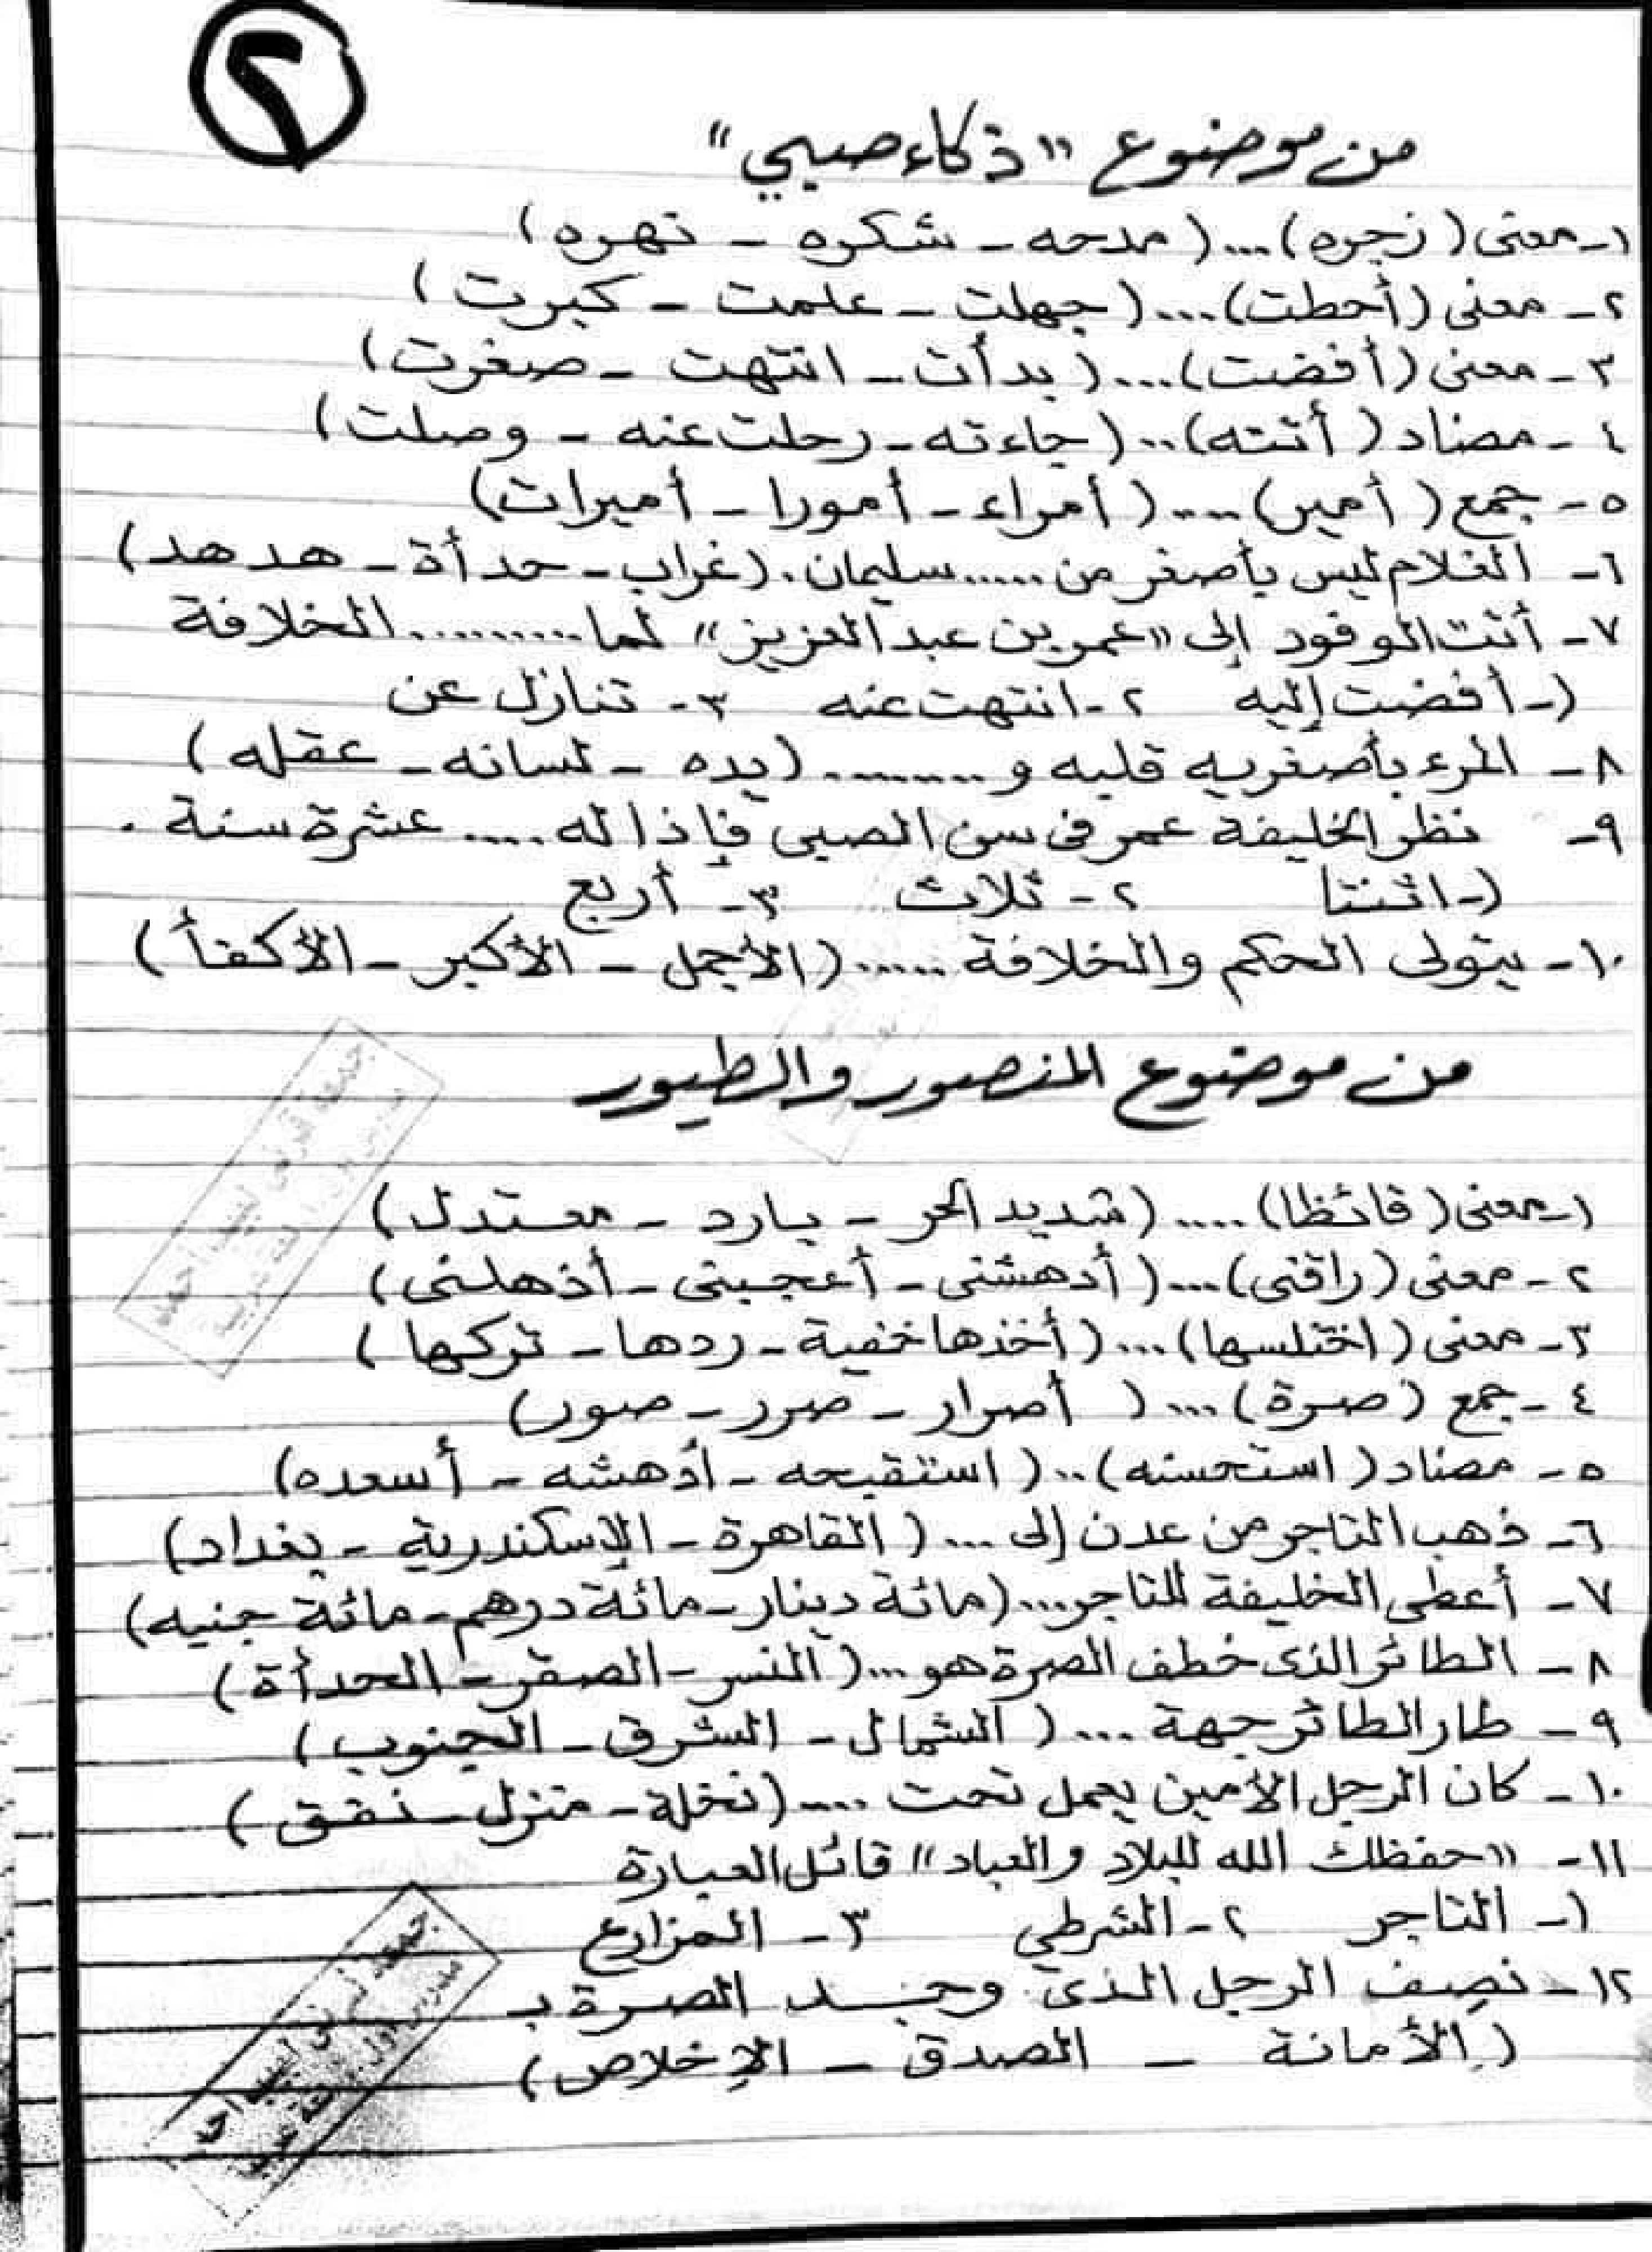 ٢
من موضوع "ذكاء صبي"
١- معنى (زجره) ... (مدحه - شكره - نهره)
٢- معنى (أحطت) .... (جهلت - علمت - كبرت)
٣- معنى (أفضت) .... (بدأت - انتهت - صغرت)
٤- مضاد (أتته) .. (جاءته - رحلت عنه - وصلت)
٥- جمع (أمير) .... (أمراء - أمورا - أميرات)
٦- الغلام ليس بأصغر من ..... سليمان. (غراب - حدأة - هدهد)
٧- أتت الوفود إلى "عمر بن عبد العزيز" لما .......... الخلافة
١- أفضت إليه ٢- انتهت عنه ٣- تنازل عن
٨- المرء بأصغريه قلبه و ......... (يده - لسانه - عقله)
٩- نظر الخليفة عمر فى سن الصبى فإذا له ..... عشرة سنة .
١- اثنتا ٢- ثلاث ٣- أربع
١٠- يتولى الحكم والخلافة ...... (الأجمل - الأكبر - الأكفأ)
من موضوع المنصور والطيور
١- معنى (قائظا) ..... (شديد الحر - بارد - معتدل)
٢- معنى (راقنى) .... (أدهشنى - أعجبنى - أذهلنى)
٣- معنى (اختلسها) .... (أخذها خفية - ردها - تركها)
٤- جمع (صرة) .... ( أصرار - صرر - صور)
٥- مضاد (استحسنه) .. (استقبحه - أدهشه - أسعده)
٦- ذهب التاجر من عدن إلى ... (القاهرة - الإسكندرية - بغداد)
٧- أعطى الخليفة للتاجر .... (مائة دينار - مائة درهم - مائة جنيه)
٨- الطائر الذى خطف الصرة هو ... (النسر - الصقر - الحدأة)
٩- طار الطائر جهة ... (الشمال - الشرق - الجنوب)
١٠- كان الرجل الأمين يعمل تحت .... (نخلة - منزل - نفق)
١١- "حفظك الله للبلاد والعباد" قائل العبارة
١- التاجر ٢- الشرطي ٣- المزارع
١٢- نصف الرجل الذى وجد الصرة بـ
(الأمانة - الصدق - الإخلاص)